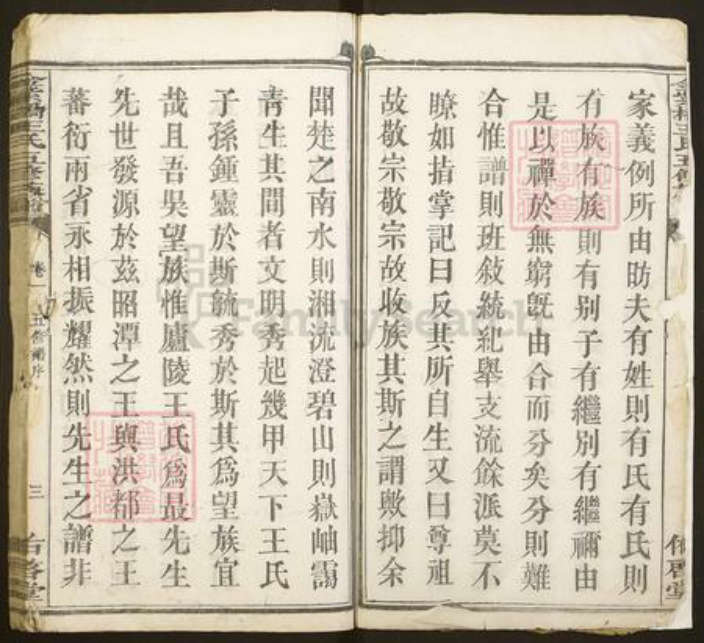 家義例所由昉夫有姓則有氏有氏則
有族有族則有別子有繼別有繼禰由
是以禪於無窮旣由合而分矣分則難
合惟譜則班敍統紀舉支流餘派莫不
瞭如指掌記曰反其所自生又曰尊祖
故敬宗敬宗故收族其斯之謂歟抑余
聞楚之南水則湘流澄碧山則嶽岫靄
靑生其間者文明秀起幾甲天下王氏
子孫鍾靈於斯毓秀於斯其爲望族宜
哉且吾吳望族惟廬陵王氏爲最先生
先世發源於茲昭潭之王與洪都之王
蕃衍兩省永相振耀然則先生之譜非
王氏五修
卷一
五修譜序
三
啓堂
FamilySearch